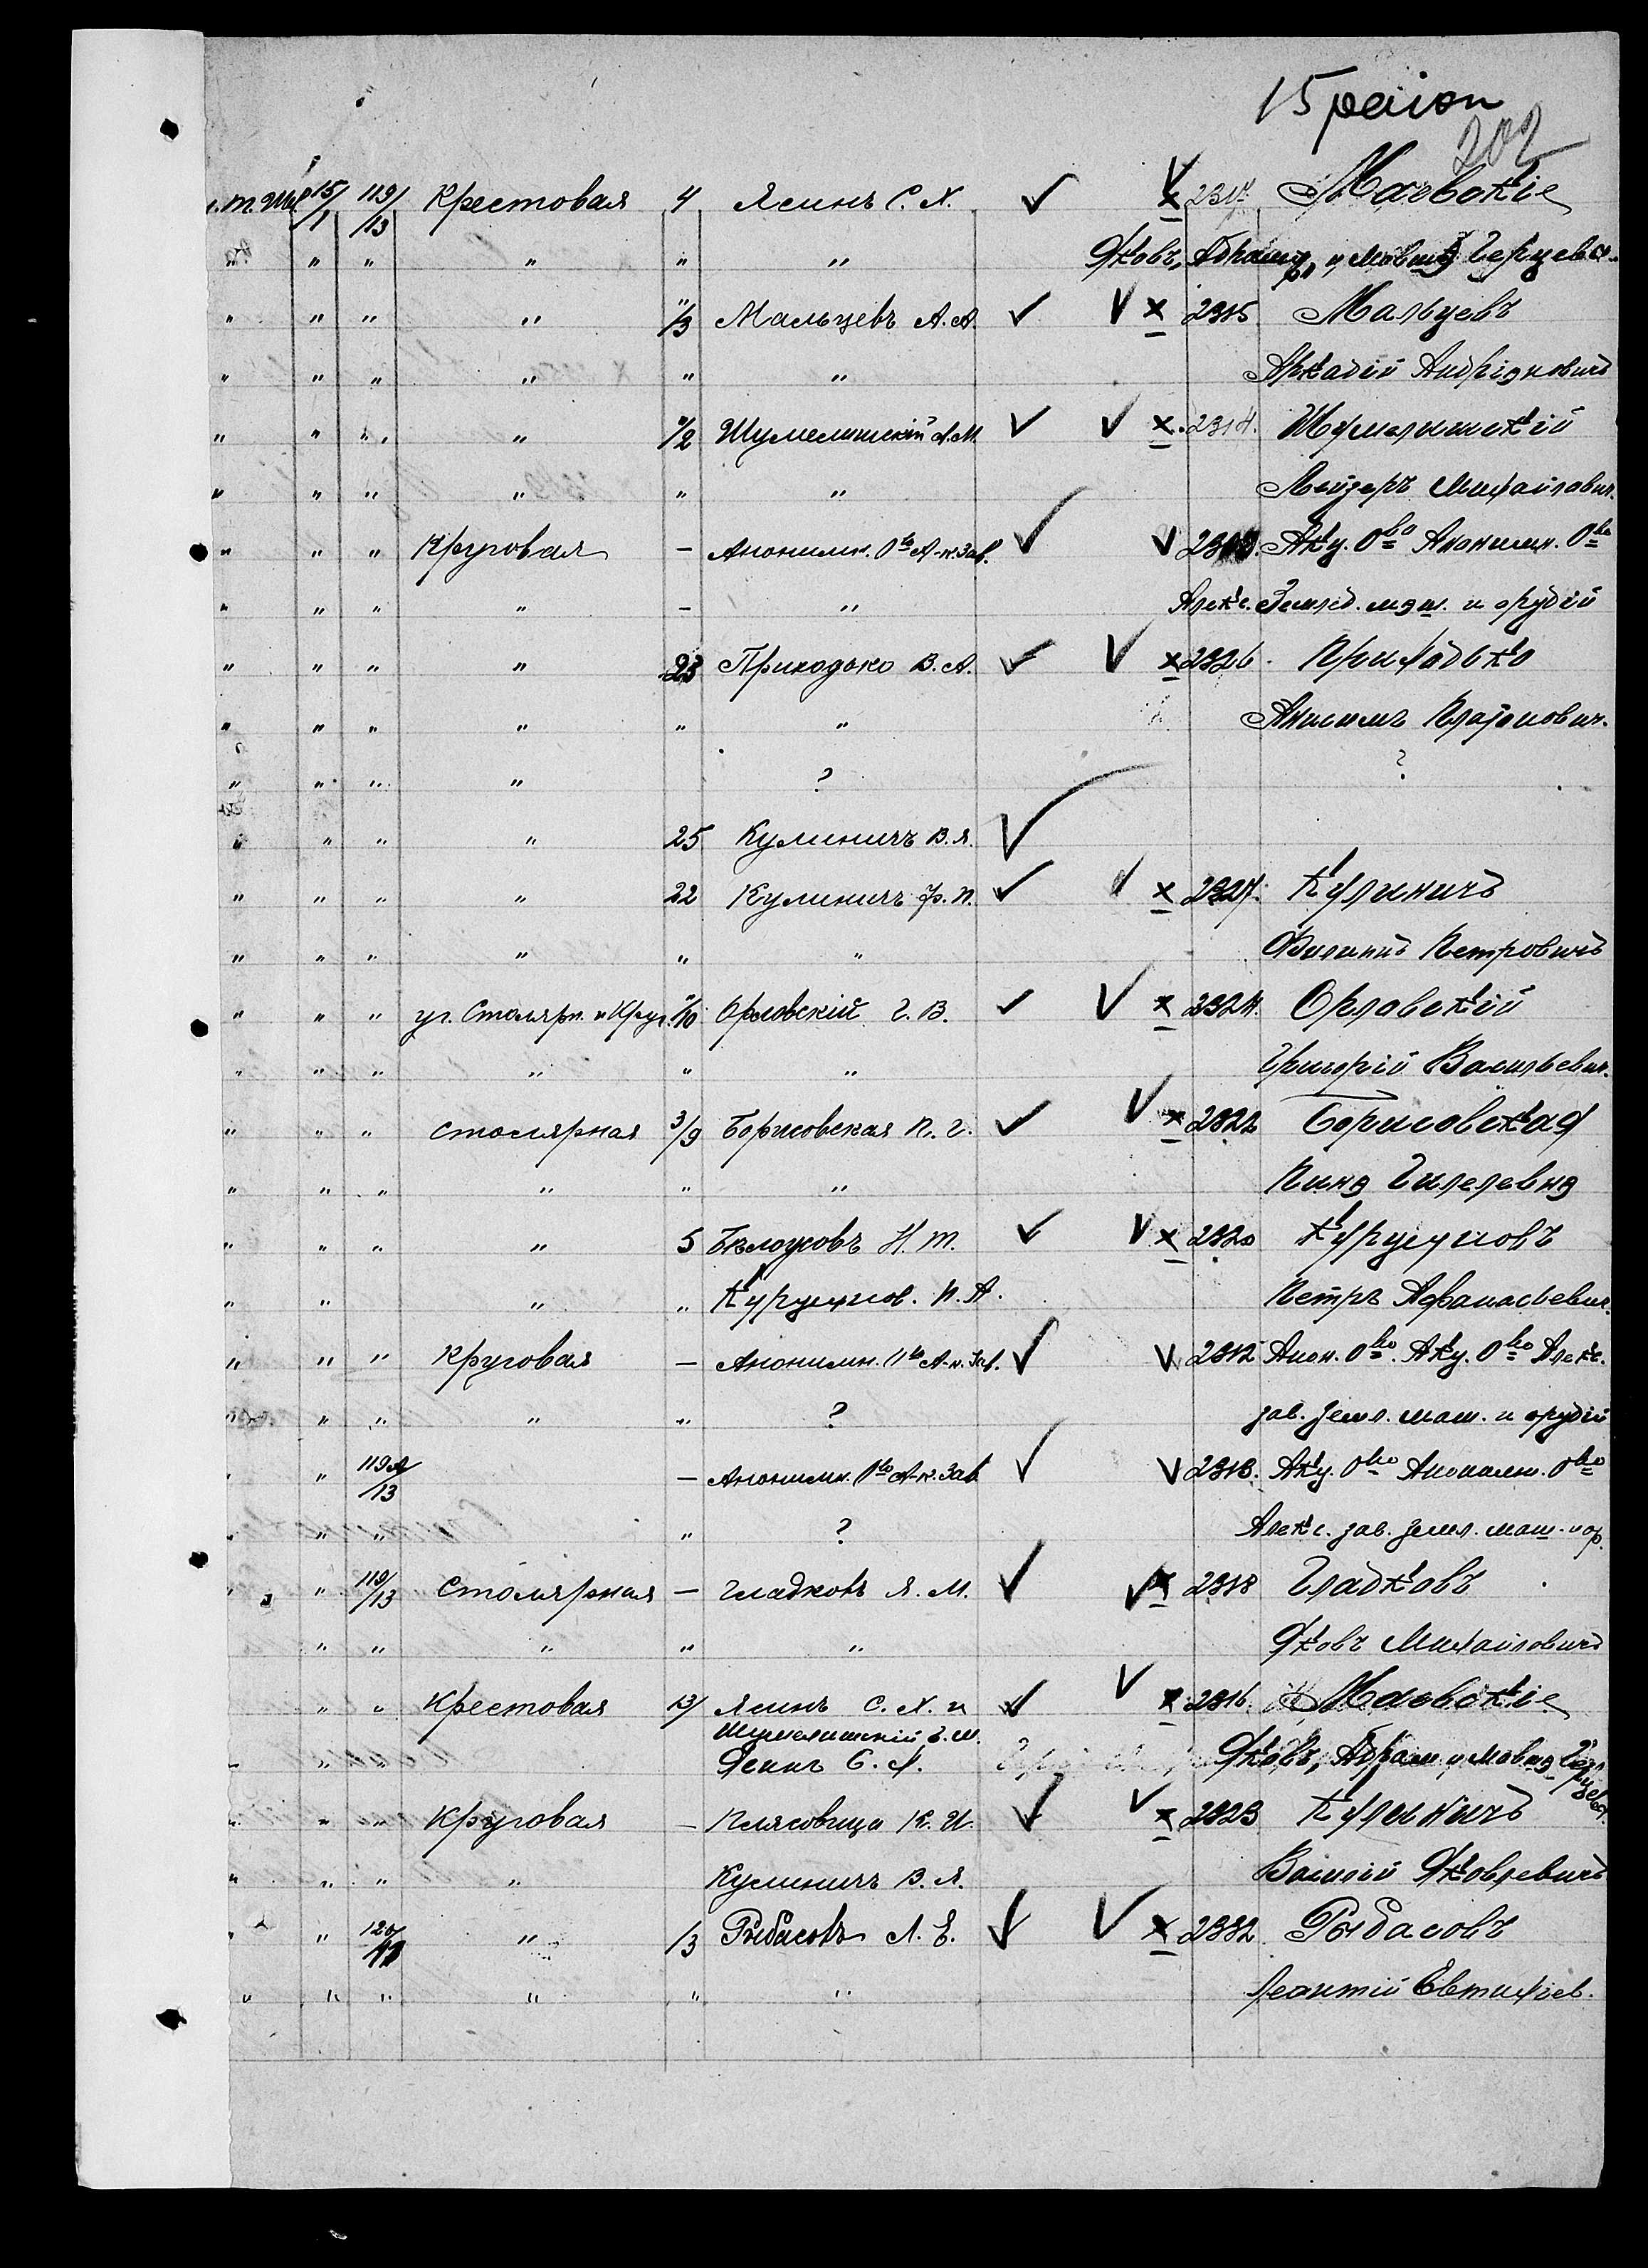 15 район
202
15/1 119/13 Крестовая 4 Ясинъ С. Х. 2317 Маевскіе
" " " " " " Яковъ, Абрамъ и Мовша Герцевы
" " " " "/3 Мальцевъ А. А. 2315 Мальцевъ
" " " " " " Аркадій Андріановичъ
" " " " "/2 Шумелишскій Л. М. 2314. Шумелишскій
" " " " " " Лейзеръ Михайлович.
" " " Круговая — Анонимн. О-во А-к. Зав. Акц. О-во Анонимн. О-во
" " " " — " Алекс. Землед. маш. и орудій
" " " " 23 Приходько В. А. 2326. Приходько
" " " " " " Анисимъ Платонович.
" " " " ? ?
" " " " 25 Кулиничъ В. Я.
" " " " 22 Кулиничъ Ф. П. 2327. Кулиничъ
" " " " " " Филиппъ Петровичъ
" " " уг. Столярн. и Круг. "/10 Орловскій Г. В. 2324. Орловскій
" " " " " " Григорій Васильевич.
" " " Столярная 3/9 Борисовская П. Г. 2322 Борисовская
" " " " " " Пина Гилелевна
" " " " 5 Бѣлоусовъ Н. Т. 2320 Курцуновъ
" " " " Курцунов. П. А. Петръ Афанасьевич.
" " " Круговая — Анонимн. О-во А-к. Зав. 2312 Анон. О-во. Акц. О-во Алекс.
" " " " " ? зав. земл. маш. и орудій
" " 119а/13 — Анонимн. О-во А-к. Зав. 2313. Акц. О-во Анонимн. О-во
" " " " ? Алекс. зав. земл. маш. и ор.
" " 119/13 Столярная — Гладковъ Я. М. 2318 Гладковъ
" " " " " Яковъ Михайловичъ
" " Крестовая 13/ Ясинъ С. Х. и 2316. Маевскіе
Шумелишскій
" " " Ясинъ С. Х. Яковъ, Абрам и Мовша Герцевы
" " " Круговая — Плясовица К. И. 2323 Кулиничъ
" " " " Кулиничъ В. Я. Василій Яковлевичъ
" " 120/13 " /3 Рыбасовъ Л. Е. 2332 Рыбасовъ
" " " " " " Леонтій Евтихіев.